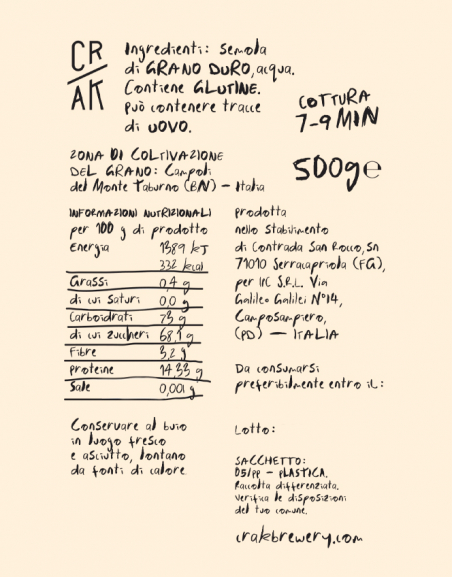 CR
AK
Ingredienti: Semola
di GRANO DURO, acqua.
Contiene GLUTINE.
può contenere tracce
di UOVO.
COTTURA
7-9 MIN
ZONA DI COLTIVAZIONE
DEL GRANO: Campoli
del Monte Taburno (BN) – Italia
500g e
INFORMAZIONI NUTRIZIONALI
per 100 g di prodotto
Energia 1389 kJ
332 kcal
Grassi 0,4 g
di cui Saturi 0,0 g
Carboidrati 73 g
di cui zuccheri 68,1 g
Fibre 3,2 g
proteine 14.33 g
Sale 0,001 g
Conservare al buio
in luogo fresco
e asciutto, lontano
da fonti di calore
prodotta
nello Stabilimento
di Contrada San Rocco, Sn
71010 Serracapriola (FG),
per IFC S.R.L. Via
Galileo Galilei N°14,
Camposampiero,
(PD) – ITALIA
Da consumarsi
preferibilmente entro il:
Lotto:
SACCHETTO:
05/PP – PLASTICA.
Raccolta differenziata.
verifica le disposizioni
del tuo comune.
crakbrewery.com